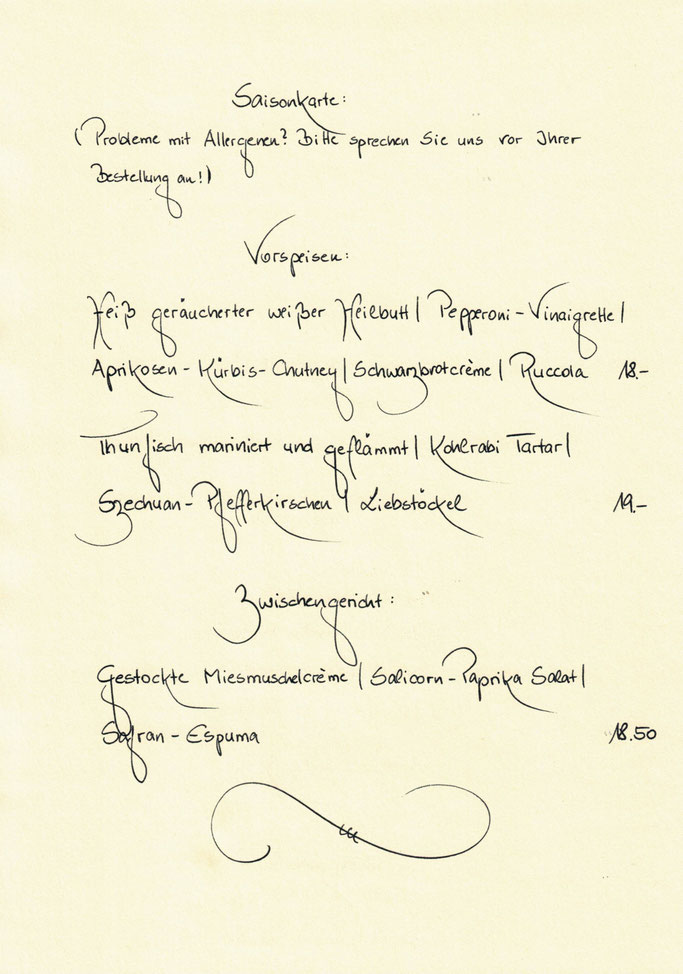 Saisonkarte:
(Probleme mit Allergenen? Bitte sprechen Sie uns vor Ihrer
Bestellung an!)
Vorspeisen:
Heiß geräucherter weißer Heilbutt | Pepperoni-Vinaigrette |
Aprikosen-Kürbis-Chutney | Schwarzbrotcrème | Ruccola 18.-
Thunfisch mariniert und geflämmt | Kohlrabi Tartar |
Szechuan-Pfefferkirschen | Liebstöckel 19.-
Zwischengericht:
Gestockte Miesmuschelcrème | Salicorn-Paprika Salat |
Safran-Espuma 18.50